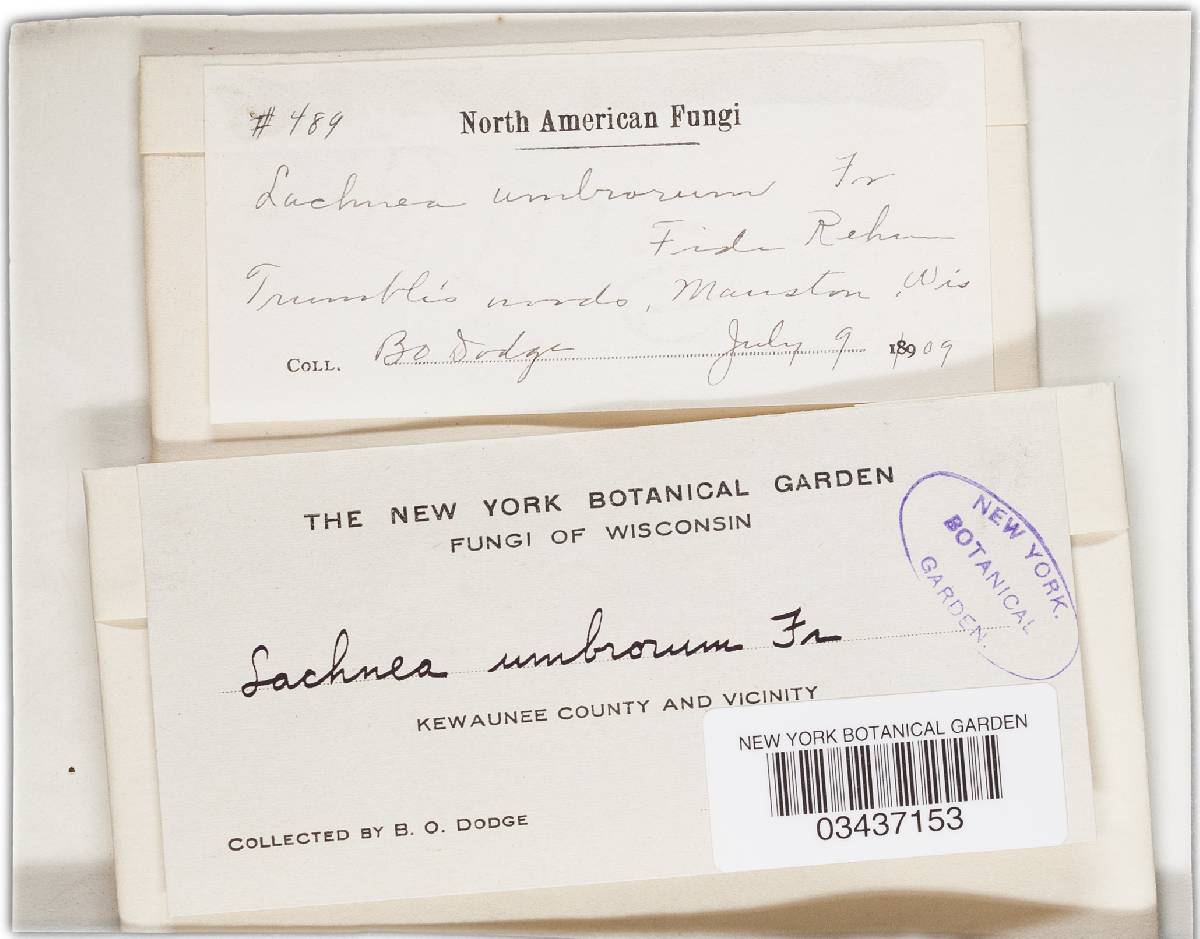 # 489
North American Fungi
Lachnea umbrorum Fr
Fide Rehm
Trumble's woods, Mauston, Wis
COLL. BO Dodge July 9 1909
THE NEW YORK BOTANICAL GARDEN
FUNGI OF WISCONSIN
NEW YORK.
BOTANICAL
GARDEN.
Lachnea umbrorum Fr
KEWAUNEE COUNTY AND VICINITY
NEW YORK BOTANICAL GARDEN
03437153
COLLECTED BY B. O. DODGE